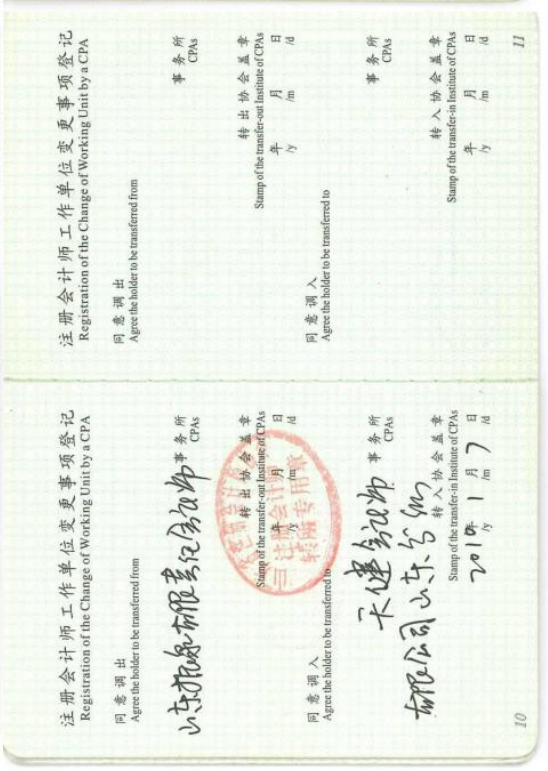 注册会计师工作单位变更事项登记
Registration of the Change of Working Unit by a CPA
同意调出
Agree the holder to be transferred from
山东有限责任会计师 事务所
CPAs
转出协会盖章
Stamp of the transfer-out Institute of CPAs
年 月 日
/y /m /d
注册会计师
转所专用章
同意调入
Agree the holder to be transferred to
天健会计师 事务所
CPAs
有限公司山东分所
转入协会盖章
Stamp of the transfer-in Institute of CPAs
2010 年 1 月 7 日
/y /m /d
10
注册会计师工作单位变更事项登记
Registration of the Change of Working Unit by a CPA
同意调出
Agree the holder to be transferred from
事务所
CPAs
转出协会盖章
Stamp of the transfer-out Institute of CPAs
年 月 日
/y /m /d
同意调入
Agree the holder to be transferred to
事务所
CPAs
转入协会盖章
Stamp of the transfer-in Institute of CPAs
年 月 日
/y /m /d
11